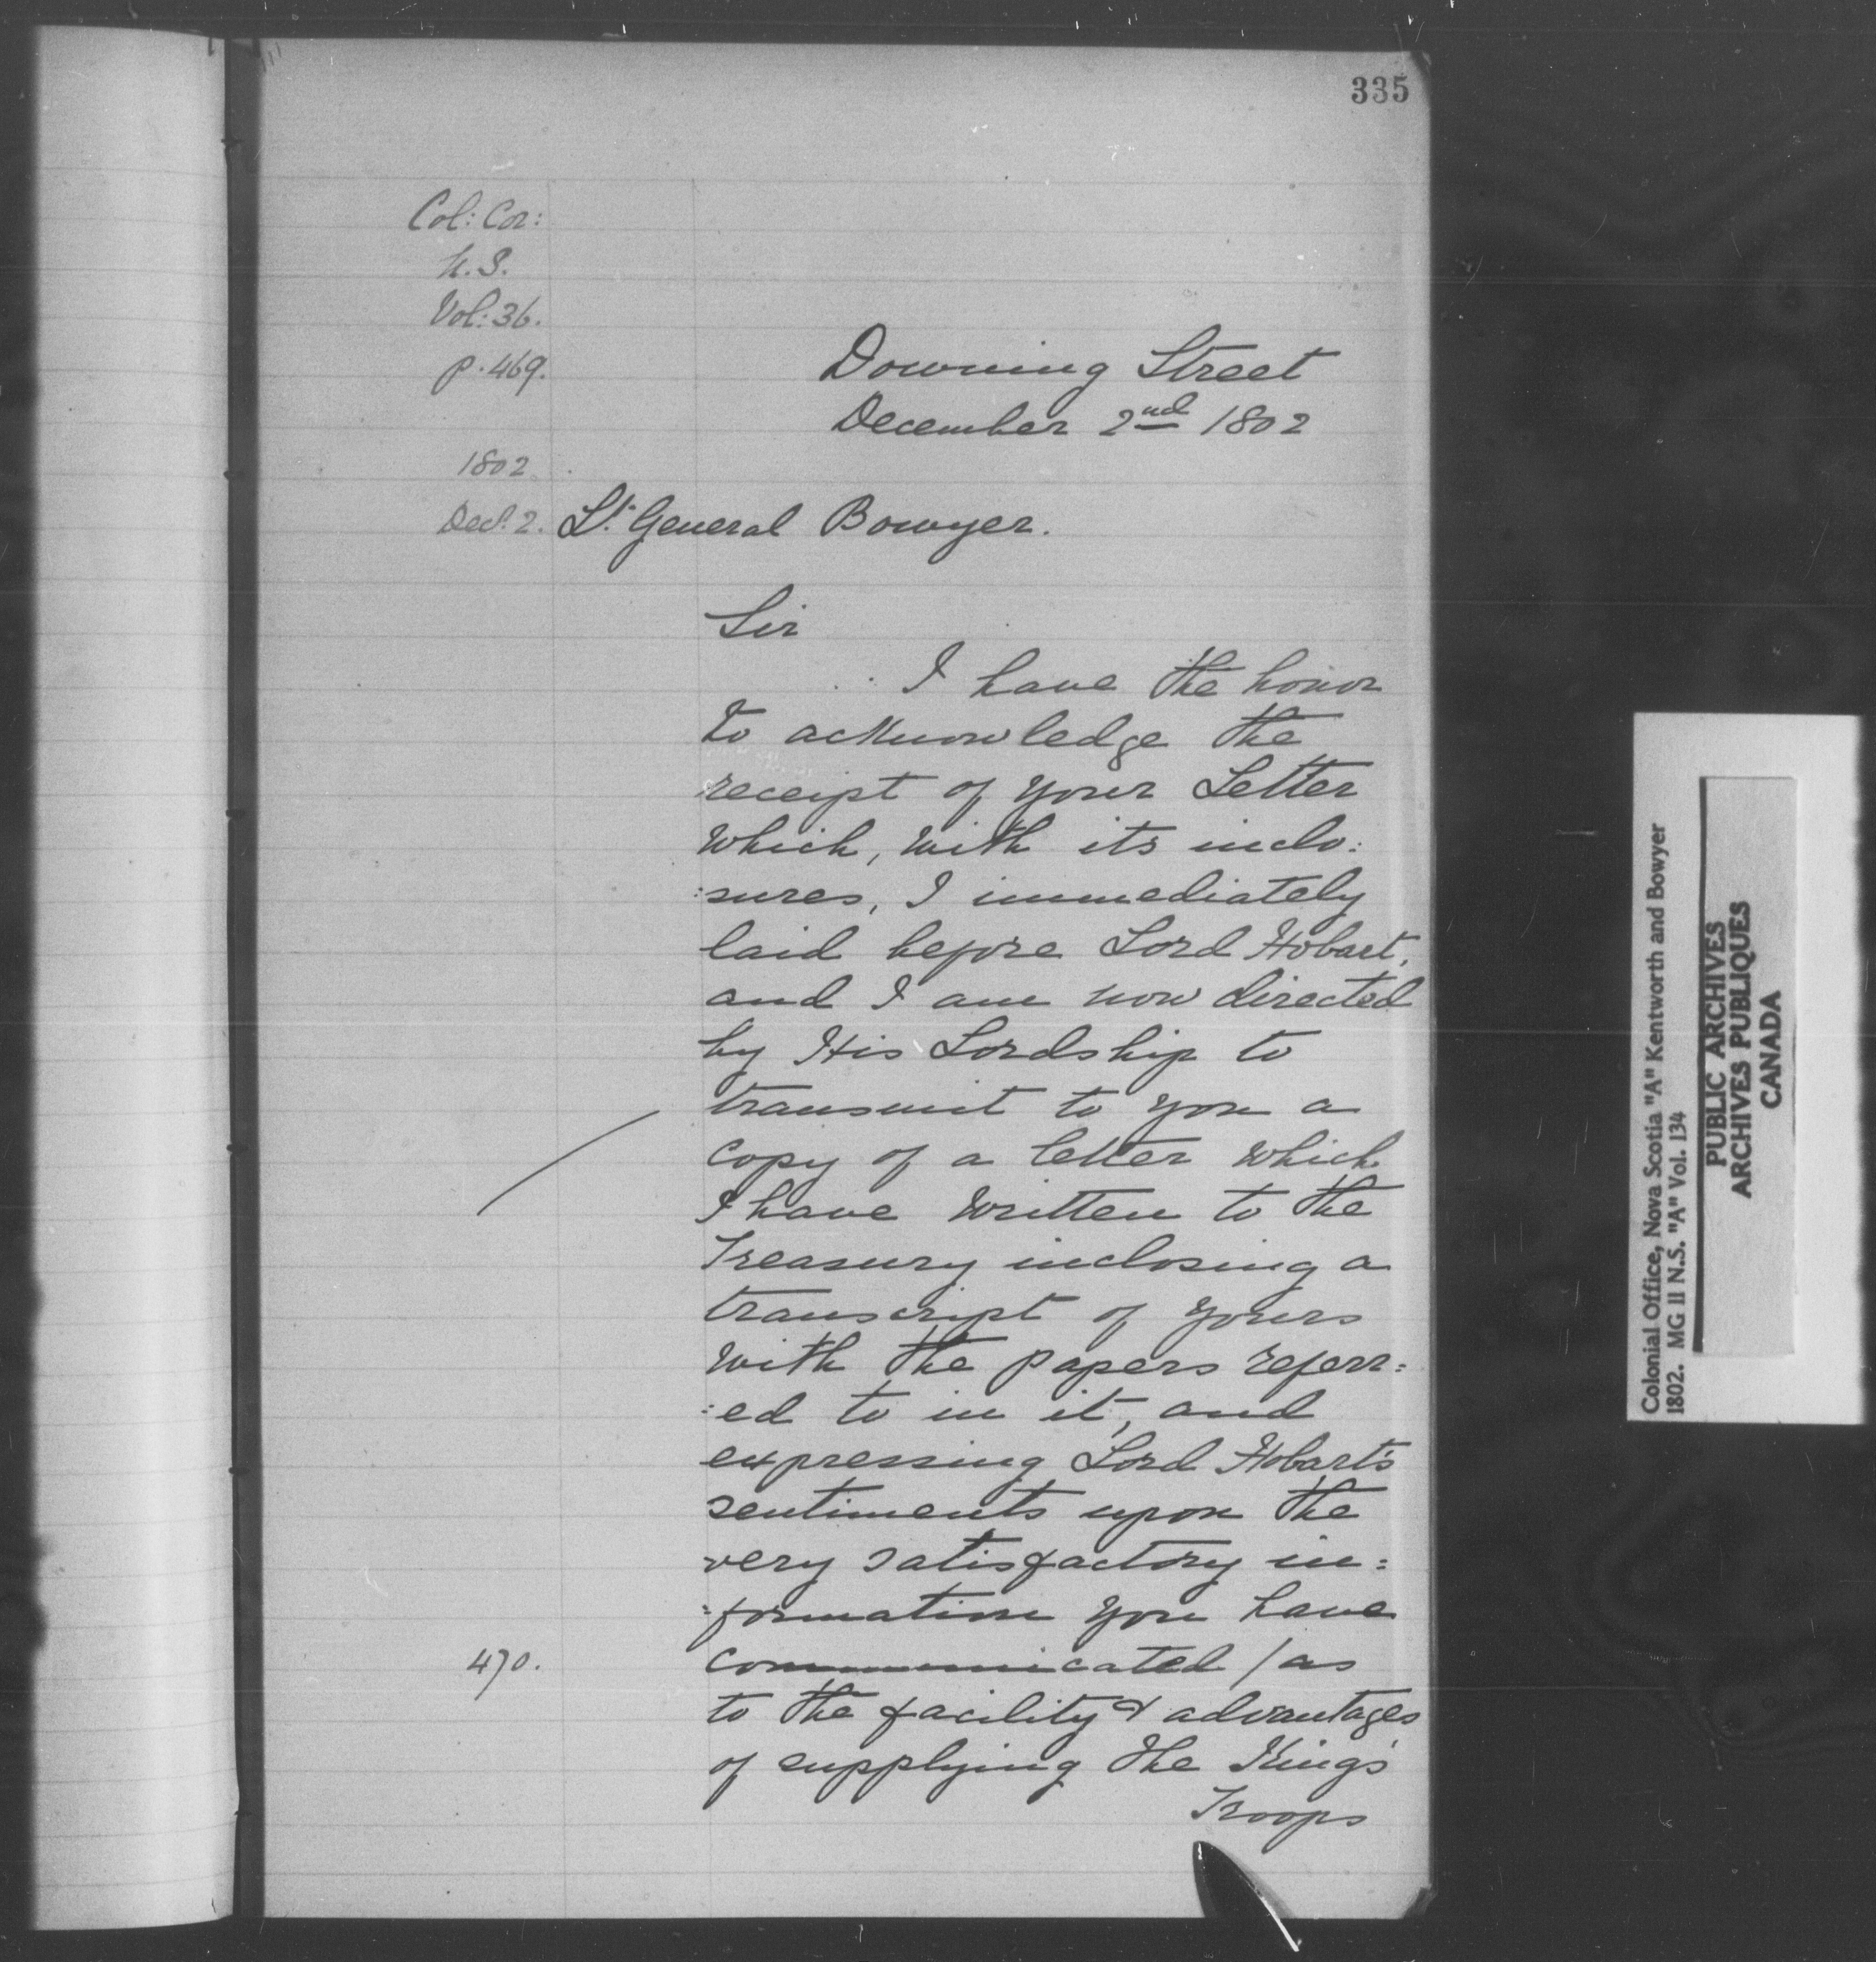 335
Col: Cor:
N.S.
Vol: 36.
p. 469.
Downing Street
December 2nd 1802
1802
Decr. 2.
Lt. General Bowyer.
Sir
I have the honor
to acknowledge the
receipt of your Letter
which, with its inclo:
:sures, I immediately
laid before Lord Hobart,
and I am now directed
by His Lordship to
transmit to you a
copy of a letter which
I have written to the
Treasury inclosing a
transcript of yours
with the papers referr:
:ed to in it, and
expressing Lord Hobart's
sentiments upon the
very satisfactory in:
:formation you have
470.
communicated / as
to the facility & advantages
of supplying the King's
Troops
Colonial Office, Nova Scotia "A" Kentworth and Bowyer
1802. MG 11 N.S. "A" Vol. 134
PUBLIC ARCHIVES
ARCHIVES PUBLIQUES
CANADA